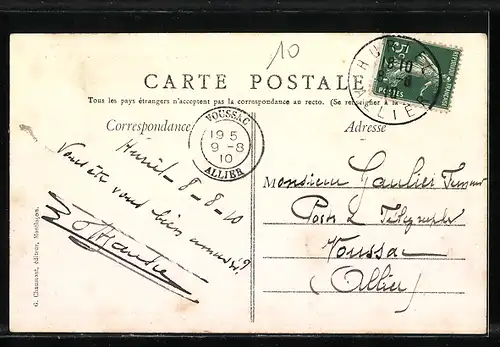 10
CARTE POSTALE
Tous les pays étrangers n'acceptent pas la correspondance au recto. (Se renseigner à la
Correspondance
Adresse
VOUSSAC
19 5
9 -8
10
ALLIER
HURIEL
ALLIER
5
POSTES
Huriel - 8-8-10
Vous êtes vous bien amusés ?
Monsieur
Postes & Télégraphes
Voussac
(Allier)
G. Chaumont, éditeur, Montluçon.